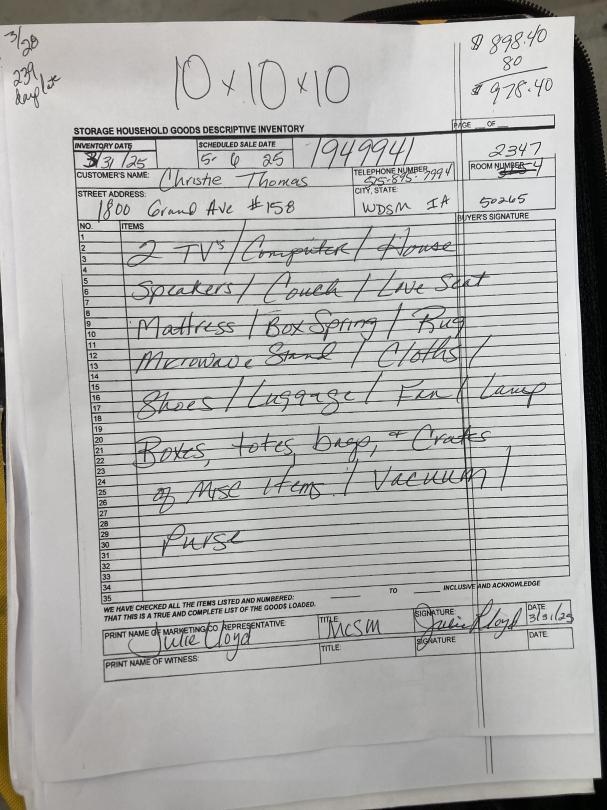 3/28
239
days late
10 x 10 x 10
$ 898.40
80
$ 978.40
PAGE __ OF __
STORAGE HOUSEHOLD GOODS DESCRIPTIVE INVENTORY
INVENTORY DATE
3/31/25
SCHEDULED SALE DATE
5- 6 25
1949941
2347
CUSTOMER'S NAME: Christie Thomas
TELEPHONE NUMBER
515-895-7994
ROOM NUMBER
STREET ADDRESS:
1800 Grand Ave #158
CITY, STATE:
WDSM IA
50265
NO. ITEMS BUYER'S SIGNATURE
1
2
3 2 TV's / Computer / House
4
5
6 Speakers / Couch / Love Seat
7
8
9 Mattress / Box Spring / Rug
10
11
12 Microwave Stand / Cloths /
13
14
15
16 Shoes / Luggage / Fan / Lamp
17
18
19
20
21 Boxes, totes, bags, + Crates
22
23
24 of Misc Items / Vacuum /
25
26
27
28
29 Purse
30
31
32
33
34
35
WE HAVE CHECKED ALL THE ITEMS LISTED AND NUMBERED: ____ TO ____ INCLUSIVE AND ACKNOWLEDGE
THAT THIS IS A TRUE AND COMPLETE LIST OF THE GOODS LOADED.
PRINT NAME OF MARKETING CO. REPRESENTATIVE: Julie Lloyd
TITLE: MCSM
SIGNATURE: Julie Lloyd
DATE 3/31/25
PRINT NAME OF WITNESS:
TITLE:
SIGNATURE
DATE: